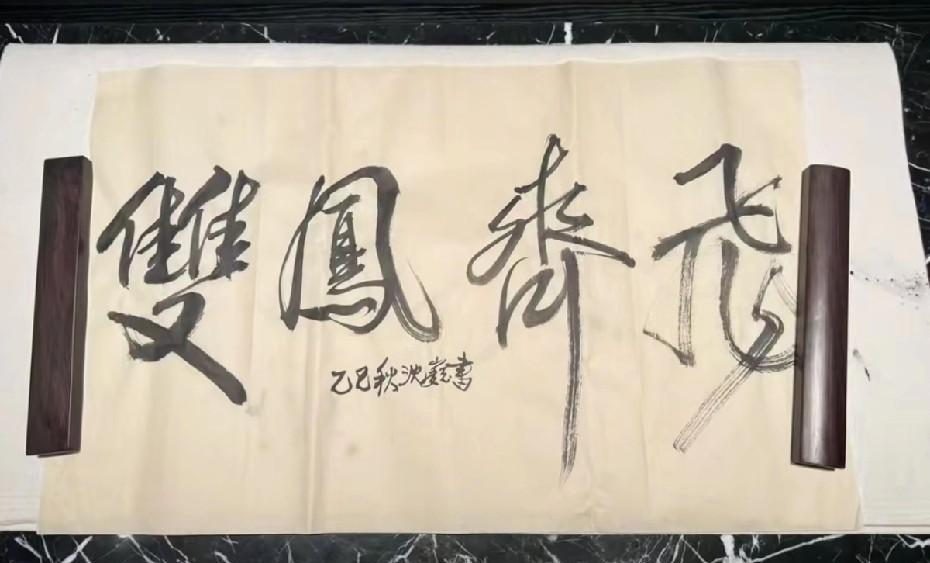 雙鳳齊飛
乙巳秋沈巖書